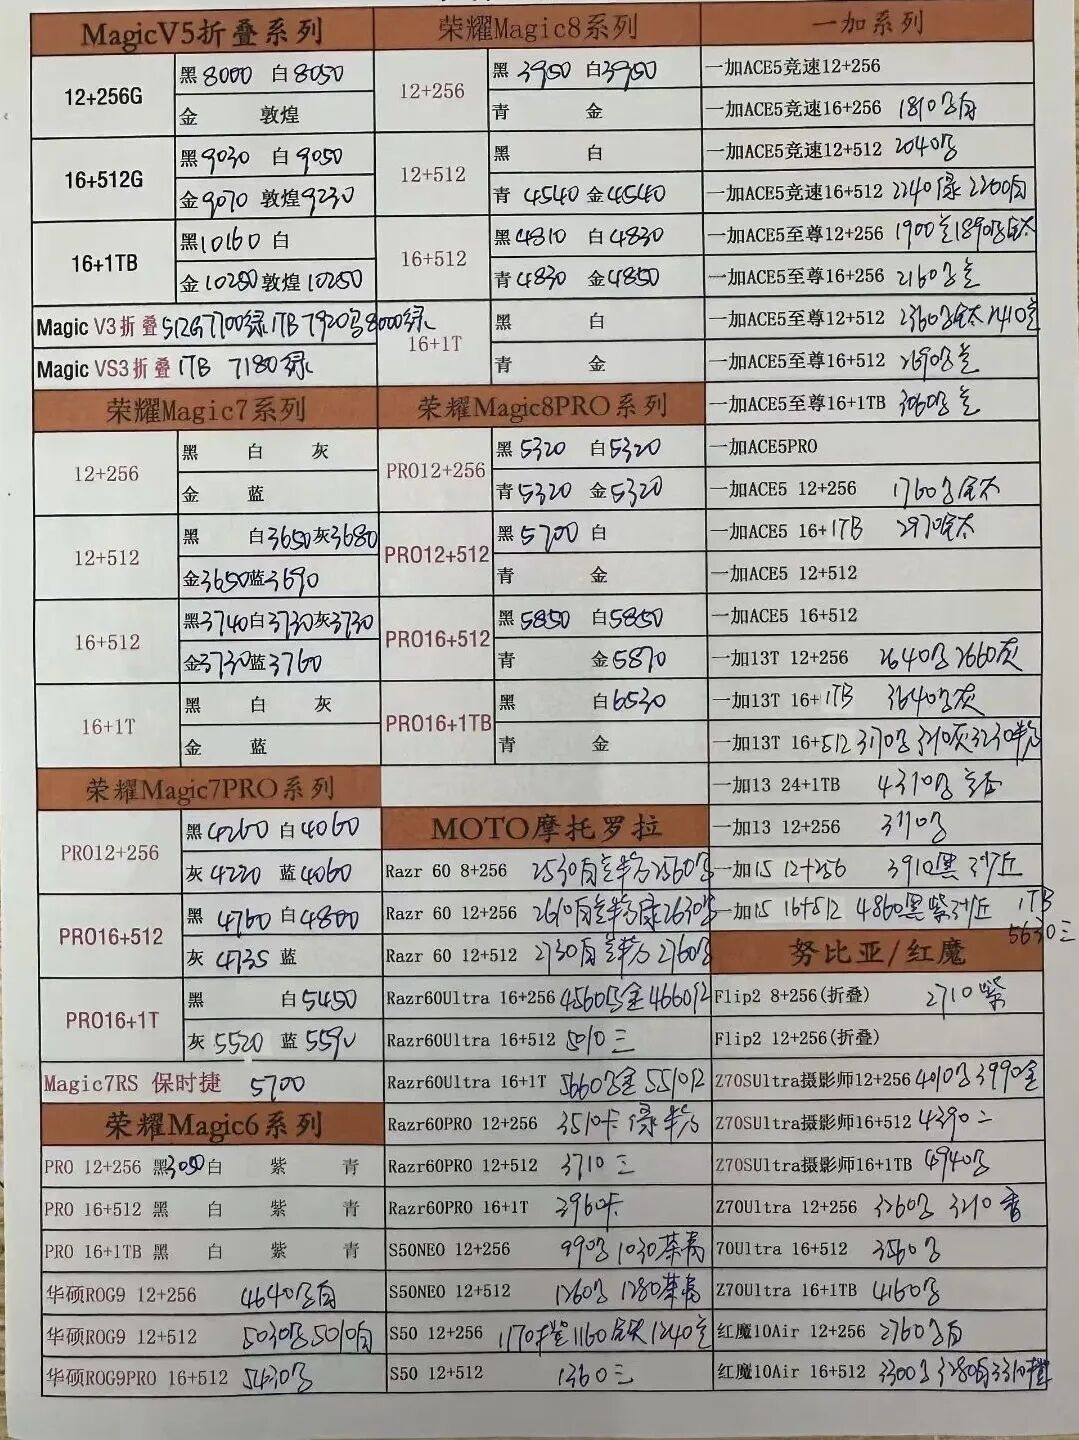 MagicV5折叠系列
12+256G
黑8000 白8050
金 敦煌
16+512G
黑9030 白9050
金9070 敦煌9230
16+1TB
黑10160 白
金10250敦煌10250
Magic V3折叠512G7700绿1TB 7920 8000绿
Magic VS3折叠1TB 7180绿
荣耀Magic7系列
12+256
黑 白 灰
金 蓝
12+512
黑 白3650灰3680
金3650蓝3690
16+512
黑3740白3730灰3730
金3730蓝3760
16+1T
黑 白 灰
金 蓝
荣耀Magic7PRO系列
PRO12+256
黑4260 白4060
灰4220 蓝4060
PRO16+512
黑4760 白4800
灰4735 蓝
PRO16+1T
黑 白5450
灰5520 蓝5590
Magic7RS 保时捷 5700
荣耀Magic6系列
PRO 12+256 黑 白 紫 青
PRO 16+512 黑 白 紫 青
PRO 16+1TB 黑 白 紫 青
华硕ROG9 12+256 4640 白
华硕ROG9 12+512 5030 5010白
华硕ROG9PRO 16+512 5430
荣耀Magic8系列
12+256
黑3950 白3950
青 金
12+512
黑 白
青4540金4540
16+512
黑4810 白4830
青4830 金4850
16+1T
黑 白
青 金
荣耀Magic8PRO系列
PRO12+256
黑5320 白5320
青5320 金5320
PRO12+512
黑5700 白
青 金
PRO16+512
黑5850 白5850
青 金5870
PRO16+1TB
黑 白6530
青 金
MOTO摩托罗拉
Razr 60 8+256 2530 2560
Razr 60 12+256 2610 2630
Razr 60 12+512 2730 2760
Razr60Ultra 16+256 4560 金4660
Razr60Ultra 16+512 5010三
Razr60Ultra 16+1T 5660 金5510
Razr60PRO 12+256 3510卡 绿
Razr60PRO 12+512 3710三
Razr60PRO 16+1T 3960卡
S50NEO 12+256 990 1030
S50NEO 12+512 1260 1280
S50 12+256 1170 1160 1240
S50 12+512 1360三
一加系列
一加ACE5竞速12+256
一加ACE5竞速16+256 1810 白
一加ACE5竞速12+512 2040
一加ACE5竞速16+512 2240绿2260白
一加ACE5至尊12+256 1900 1890 钛
一加ACE5至尊16+256 2160
一加ACE5至尊12+512 2360 钛2410
一加ACE5至尊16+512 2690
一加ACE5至尊16+1TB 3060
一加ACE5PRO
一加ACE5 12+256 1760 钛
一加ACE5 16+1TB 2970钛
一加ACE5 12+512
一加ACE5 16+512
一加13T 12+256 2640 2660灰
一加13T 16+1TB 3640 灰
一加13T 16+512 3170 3210灰3230
一加13 24+1TB 4310
一加13 12+256 3110
一加15 12+256 3910黑 沙丘
一加15 16+512 4860黑紫沙丘 1TB
5630三
努比亚/红魔
Flip2 8+256(折叠) 2710紫
Flip2 12+256(折叠)
Z70SUltra摄影师12+256 4010 3990金
Z70SUltra摄影师16+512 4390二
Z70SUltra摄影师16+1TB 4940
Z70Ultra 12+256 3260 3210
70Ultra 16+512 3560
Z70Ultra 16+1TB 4160
红魔10Air 12+256 2760 白
红魔10Air 16+512 3300 3280白3310橙